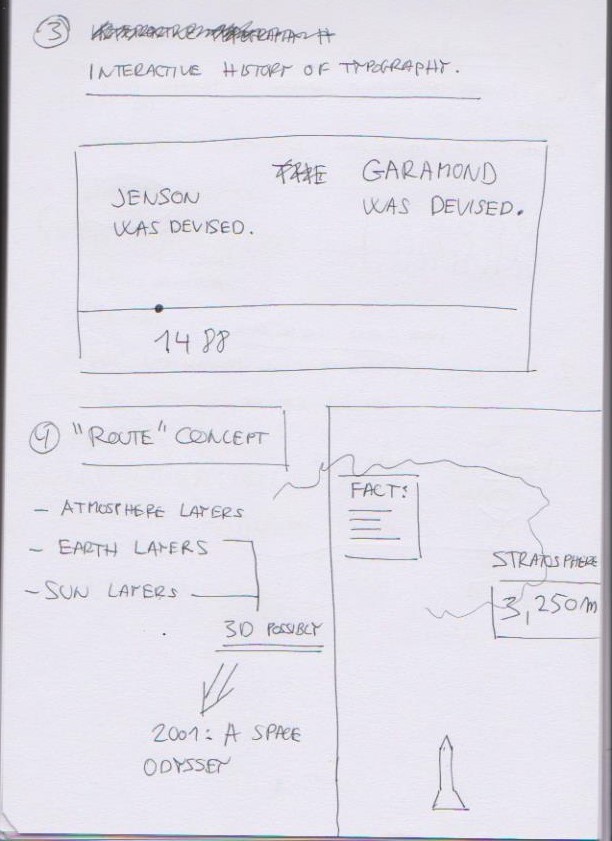 3
INTERACTIVE HISTORY OF TYPOGRAPHY.
JENSON
WAS DEVISED.
GARAMOND
WAS DEVISED.
1488
4 "ROUTE" CONCEPT
- ATMOSPHERE LAYERS
- EARTH LAYERS
- SUN LAYERS
3D POSSIBLY
2001: A SPACE
ODYSSEY
FACT:
STRATOSPHERE
3,250m